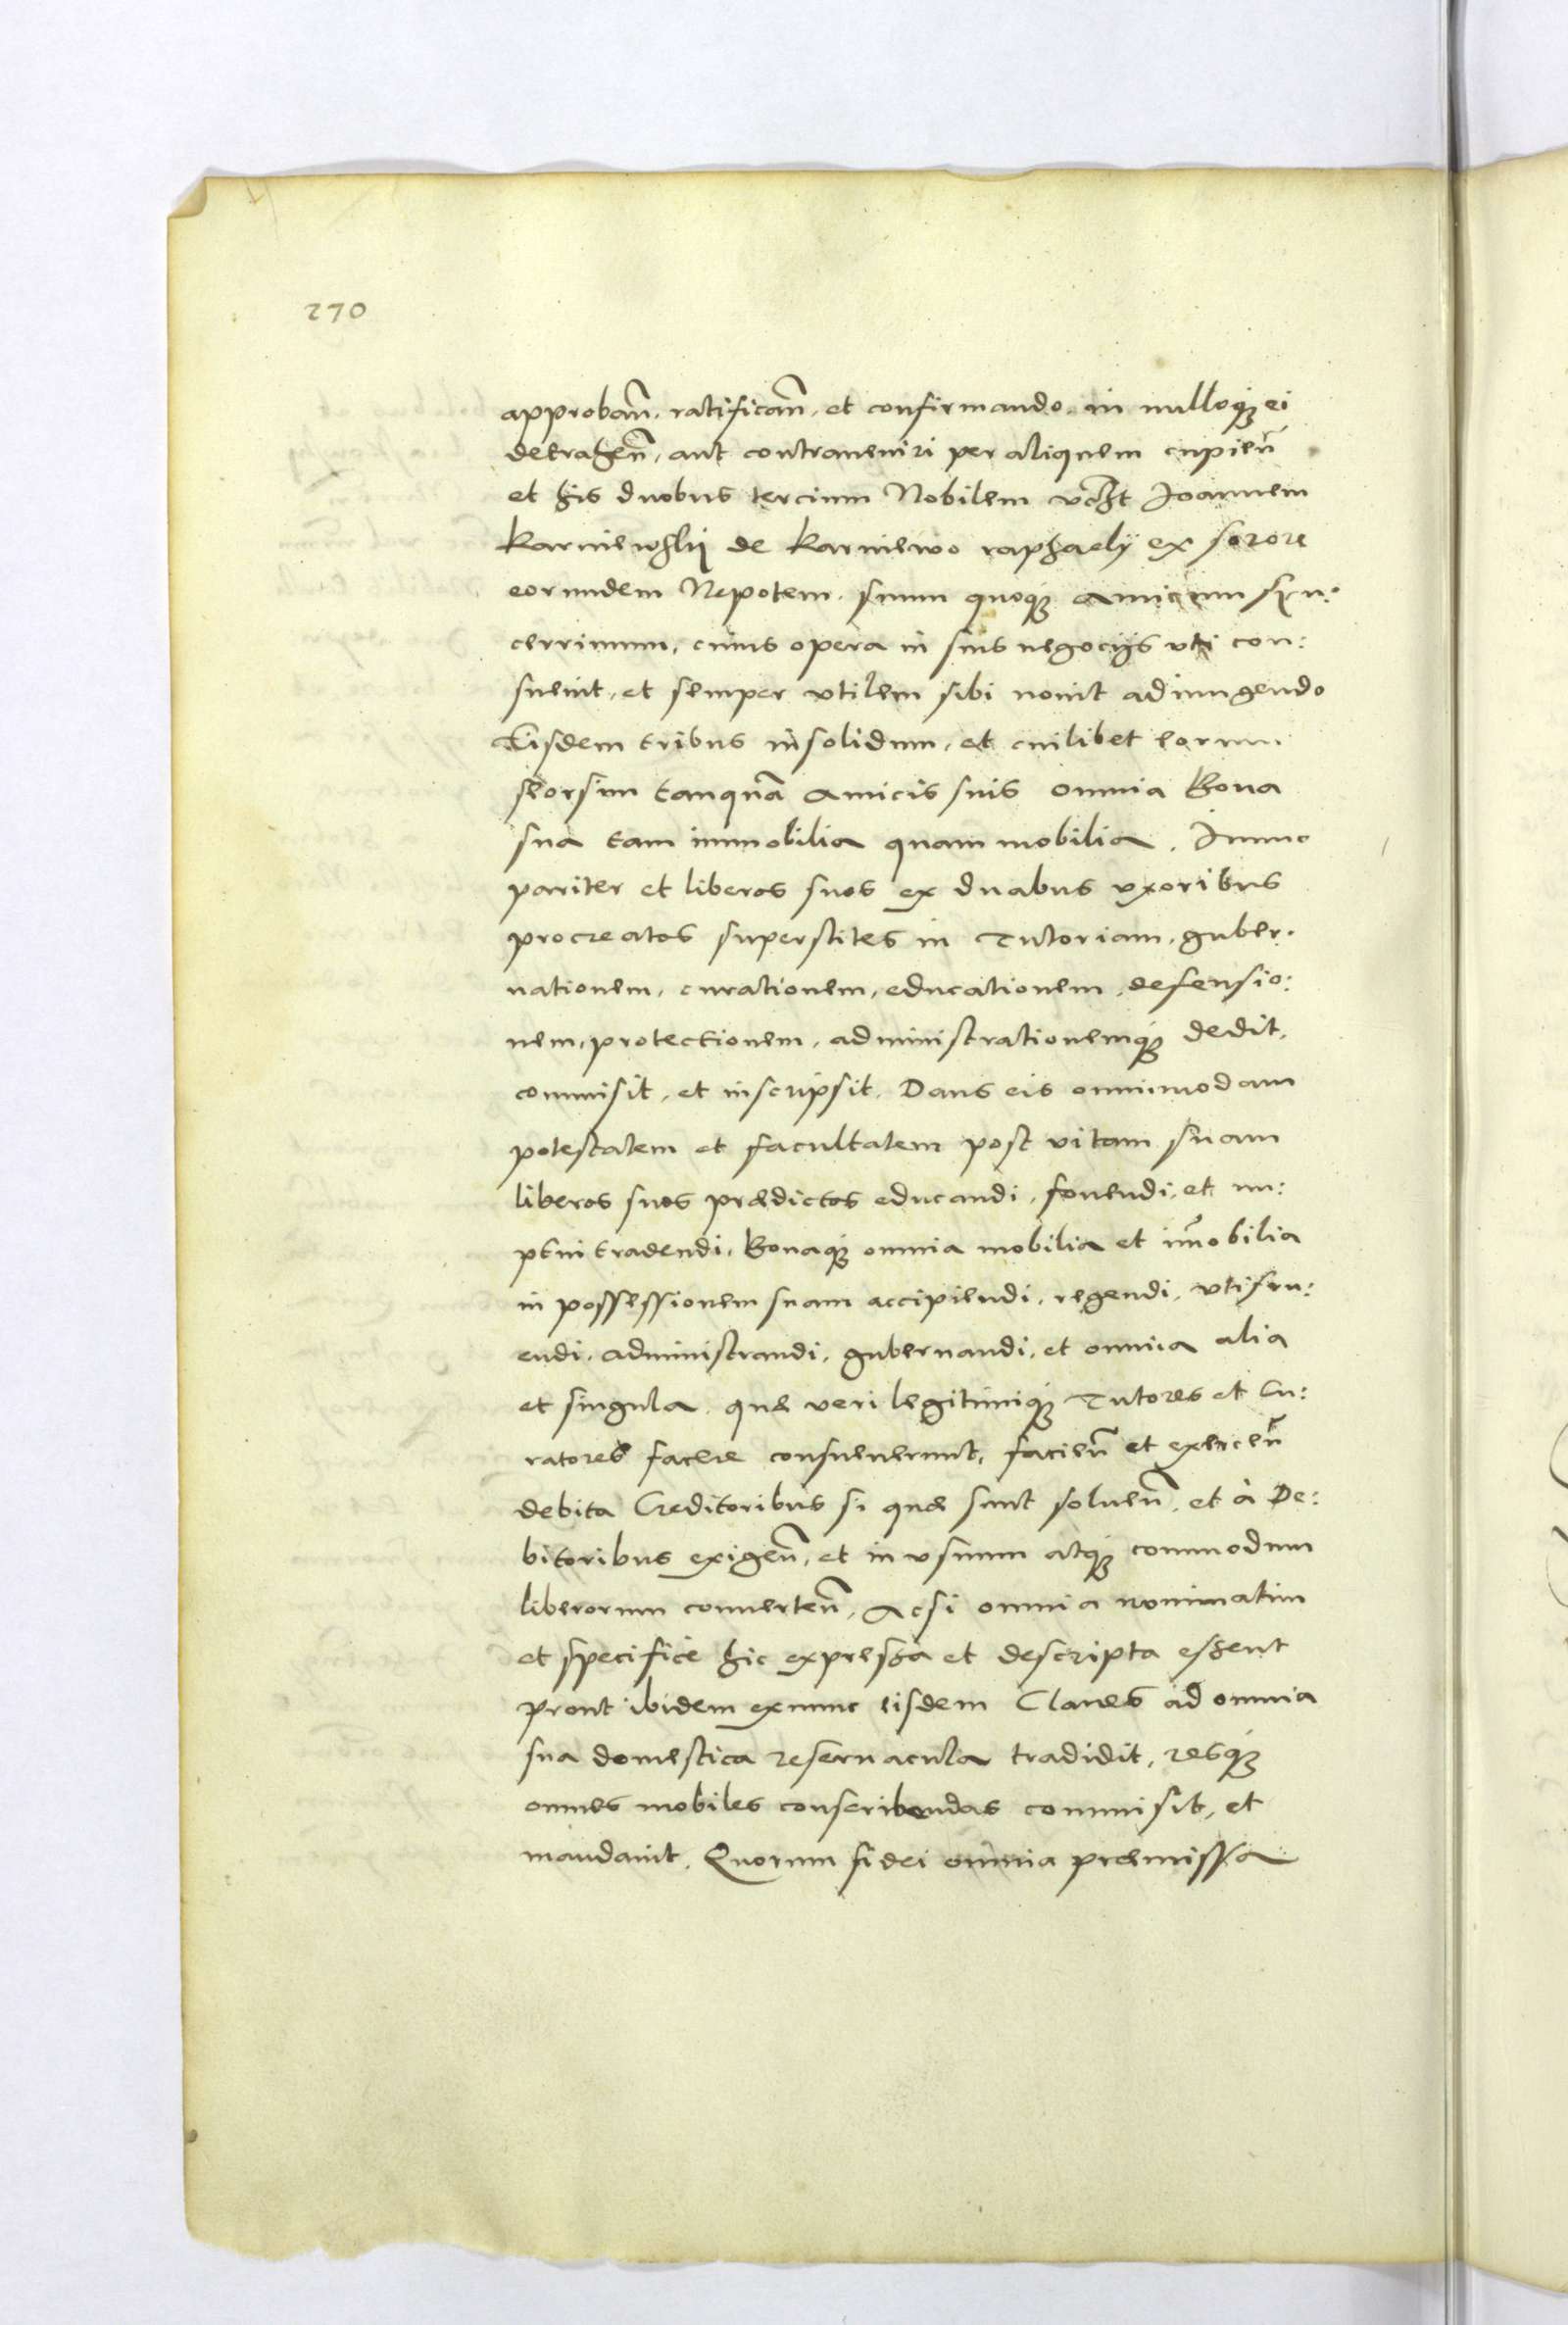 270
approbañ. ratificañ. et confirmando. in nulloq̃ ei
detraheñ, aut contraueniri per aliquem cupieñ
et his duobus tercium Nobilem vdht Joannem
Karniewskij de Karniewo raphaelij ex sorore
eorundem Nepotem. suum quoq̃ amicum syn:
cerrimum, cuius opera in suis negocijs vti con:
sueuit, et semper vtilem sibi nouit adiungendo
Eisdem tribus insolidum, et cuilibet eorum
seorsim tanquã amicis suis omnia Bona
sua tam immobilia quam mobilia. Immo
pariter et liberos suos ex duabus vxoribus
procreatos superstites in Tutoriam, guber:
nationem, curationem, educationem, defensio:
nem, protectionem, administrationemq̃ dedit,
commisit, et inscripsit. Dans eis omnimodam
potestatem et facultatem post vitam suam
liberos suos prædictos educandi, fouendi, et nu:
ptui tradendi. Bonaq̃ omnia mobilia et im̃obilia
in possessionem suam accipiendi, regendi, vtifru:
endi, administrandi, gubernandi, et omnia alia
et singula. quæ veri legitimiq̃ Tutores et Cu:
ratores facere consueuerunt, facieñ et exerceñ
debita Creditoribus si quæ sunt solueñ, et à De:
bitoribus exigeñ, et in vsumm atq̃ commodum
liberorum conuerteñ, Acsi omnia nominatim
et specifice hic expressa et descripta essent
prout ibidem exnunc eisdem Claues ad omnia
sua domestica reseruacula tradidit, resq̃
omnes mobiles conscribendas commisit, et
mandauit. Quorum fidei omnia præmissa